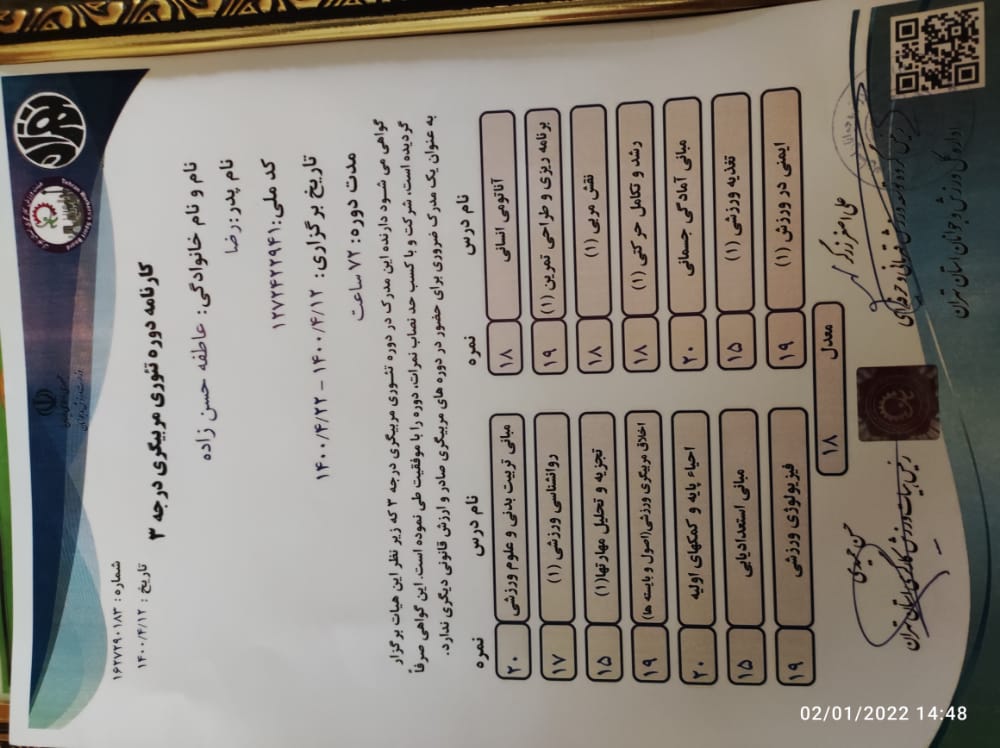 کارنامه دوره تئوری مربیگری درجه ۳
شماره : ۱۶۲۷۲۹۰۱۸۳
تاریخ : ۱۴۰۰/۴/۱۲
نام و نام خانوادگی: عاطفه حسن زاده
نام پدر: رضا
کد ملی: ۱۲۷۲۴۲۲۹۴۱
تاریخ برگزاری: ۱۴۰۰/۴/۱۲ - ۱۴۰۰/۴/۲۲
مدت دوره: ۷۲ ساعت
گواهی می شود دارنده این مدرک در دوره تئوری مربیگری درجه ۳ که زیر نظر این هیات برگزار
گردیده است، شرکت و با کسب حد نصاب نمرات، دوره را با موفقیت طی نموده است. این گواهی صرفاً
به عنوان یک مدرک ضروری برای حضور در دوره های مربیگری صادر و ارزش قانونی دیگری ندارد.
نام درس نمره نام درس نمره
آناتومی انسانی ۱۸ مبانی تربیت بدنی و علوم ورزشی ۲۰
برنامه ریزی و طراحی تمرین (۱) ۱۹ روانشناسی ورزشی (۱) ۱۷
نقش مربی (۱) ۱۸ تجزیه و تحلیل مهارتها(۱) ۱۵
رشد و تکامل حرکتی (۱) ۱۸ اخلاق مربیگری ورزشی(اصول و بایسته ها) ۱۹
مبانی آمادگی جسمانی ۲۰ احیاء پایه و کمکهای اولیه ۲۰
تغذیه ورزشی (۱) ۱۵ مبانی استعدادیابی ۱۵
ایمنی در ورزش (۱) ۱۹ فیزیولوژی ورزشی ۱۹
معدل ۱۸
علی اصغر زرگر
اداره کل ورزش و جوانان استان تهران
رئیس هیات ورزش کارگری استان تهران
02/01/2022 14:48